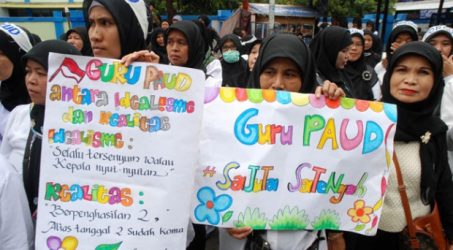 GURU PAUD
antara idealisme
dan realitas
idealisme :
"Selalu tersenyum walau
Kepala nyut-nyutan"
Realitas :
"Berpenghasilan 2,
Alias tanggal 2 sudah koma
Guru PAUD
#SaJuTa SaTeNgah